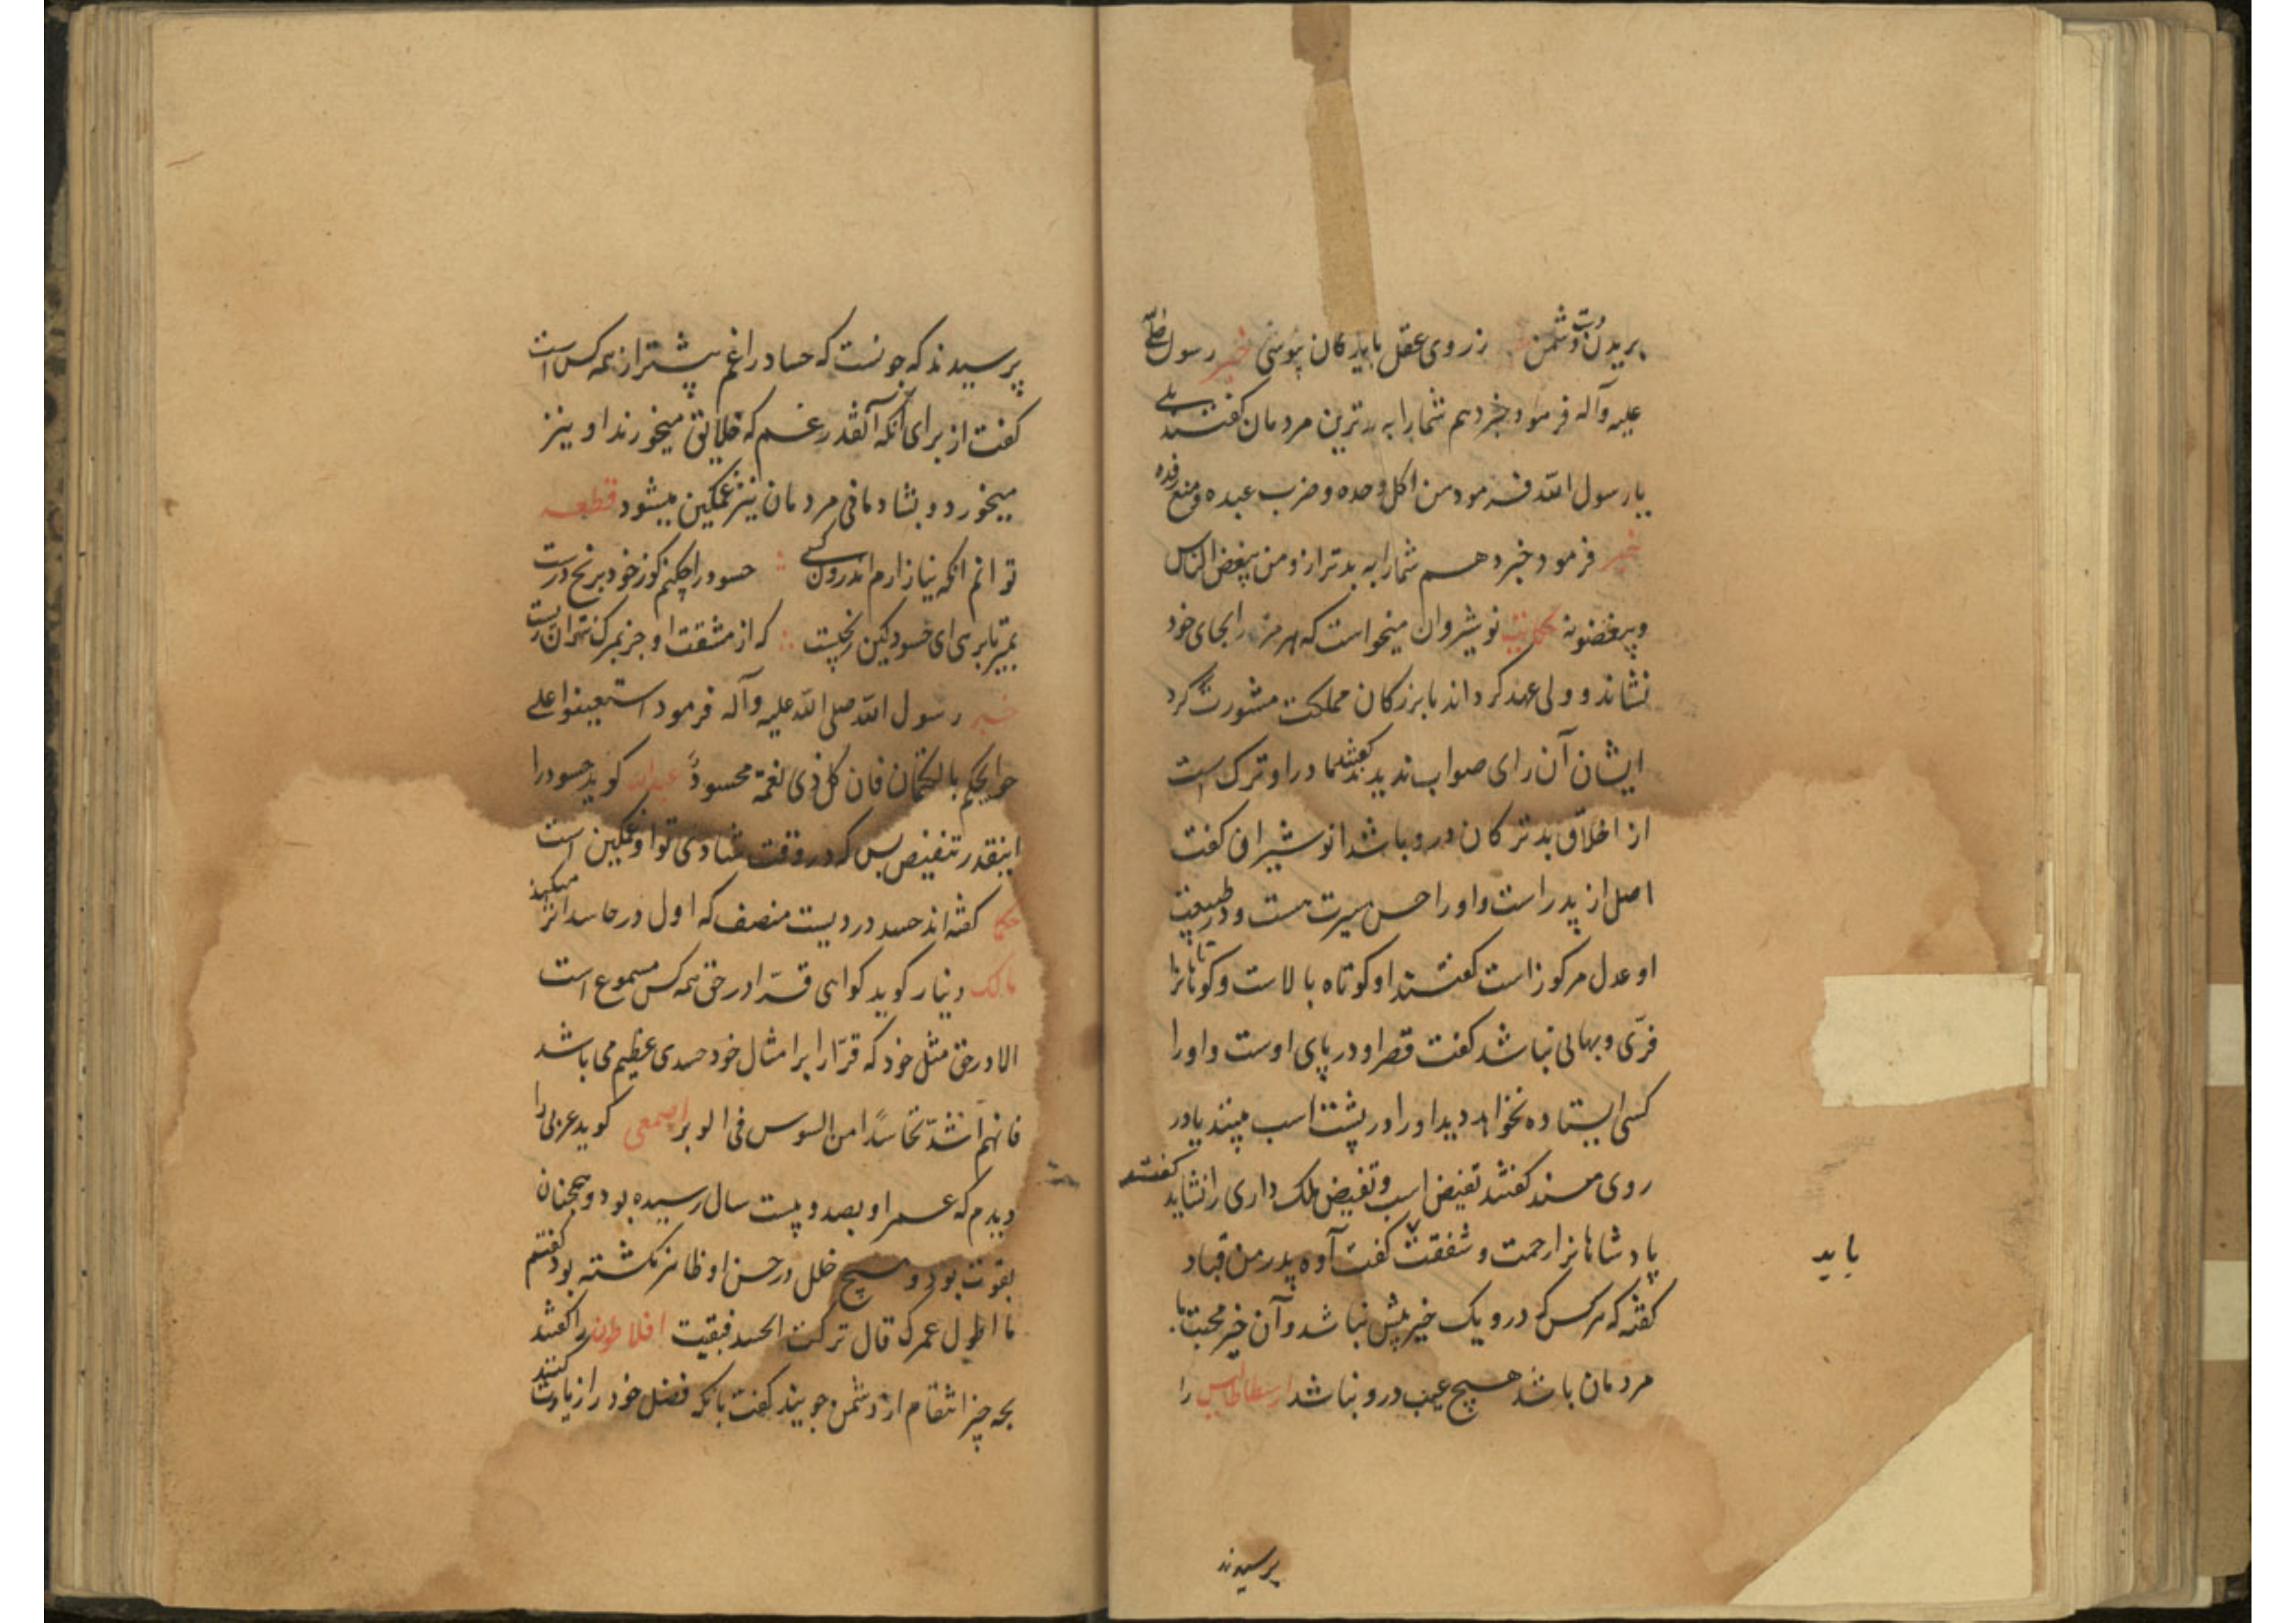 بریدن دشمن زروی عقل باید کان بپوشی خبر رسول صلی الله
علیه وآله فرمود خبر دهم شما را به بدترین مردمان گفتند بلی
یا رسول الله فرمود من اکل وحده وضرب عبده ومنع رفده
خبر فرمود خبر دهم شما را به بدتر ازو من یبغض الناس
ویبغضونه حکایت نوشیروان میخواست که هرمز را بجای خود
نشاند و ولی عهد کرداند با بزرکان مملکت مشورت کرد
ایشان آن رای صواب ندیدند گفتند مادر او ترک است
از اخلاق بد ترکان درو باشد انوشیروان کفت
اصل از پدر است واو را حسن سیرت هست و در طبیعت
او عدل مرکوز است کفتند او کوتاه بالاست و کوتاهانرا
فری و بهائی نباشد کفت قصر او در پای اوست و او را
کسی ایستاده نخواهد دید او را در پشت اسب بینند یا در
روی مسند کفتند تغیض اسب و تغیض ملک داری را نشاید کفتند
پادشاهانرا رحمت و شفقت کفت آوه پدر من قباد
باید
کفته که هر کس که درو یک خیر بیش نباشد و آن خیر محبت با
مردمان باشد هیچ عیب درو نباشد ارسطاطالیس را
پرسیدند
پرسیدند که چونست که حساد را غم بیشتر از همه کس است
کفت از برای آنکه آنقدر غم که خلایق میخورند او نیز
میخورد و بشادمانی مردمان نیز غمکین میشود قطعه
توانم انکه نیازارم اندرون کسی حسود را چکنم کوز خود برنج درست
بمیر تا برهی ای حسود کین رنجیست که از مشقت او جز بمرک نتوان رست
خبر رسول الله صلی الله علیه وآله فرمود استعینوا علی
حوایجکم بالکتمان فان کل ذی نعمة محسود عبدالله کوید حسود را
اینقدر تنغیص بس که در وقت شادی تو او غمکین است
حکما کفته اند حسد دردیست منصف که اول در حاسد اثر میکند
مالک دینار کوید کواهی قرّا در حق همه کس مسموع است
الا در حق مثل خود که قرّا را بر امثال خود حسدی عظیم می باشد
فانهم اشدّ تحاسدًا من السوس فی الوبر اصمعی کوید عربی را
دیدم که عمر او بصد و بیست سال رسیده بود و همچنان
بقوت بود و هیچ خلل در حسن او ظاهر نکشته بود کفتم
ما اطول عمرک قال ترکت الحسد فبقیت افلاطون را کفتند
بچه چیز انتقام از دشمن جویند کفت بانکه فضل خود را زیادت کنند